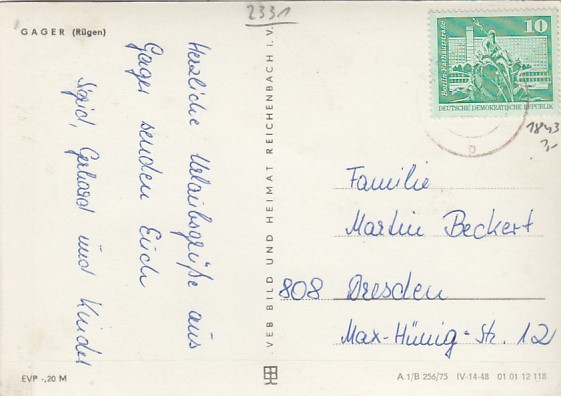 GAGER (Rügen)
2331
Herzliche Urlaubsgrüße aus
Gager senden Euch
Gerhard und Kinder
VEB BILD UND HEIMAT REICHENBACH I. V.
10
Berlin-Rathausstraße
DEUTSCHE DEMOKRATISCHE REPUBLIK
b
1843
1,-
Familie
Martin Beckert
808 Dresden
Max-Hünig-Str. 12
EVP -,20 M
A 1/B 256/75 IV-14-48 01 01 12 118